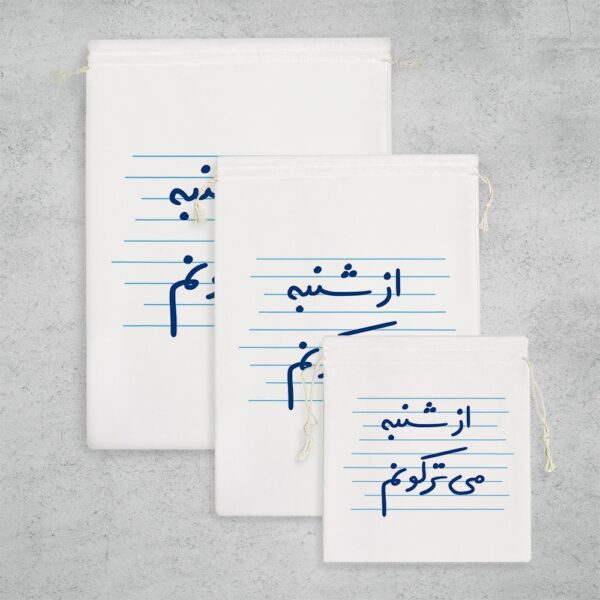 شنبه
نم
از شنبه
نم
از شنبه
می‌ترکونم